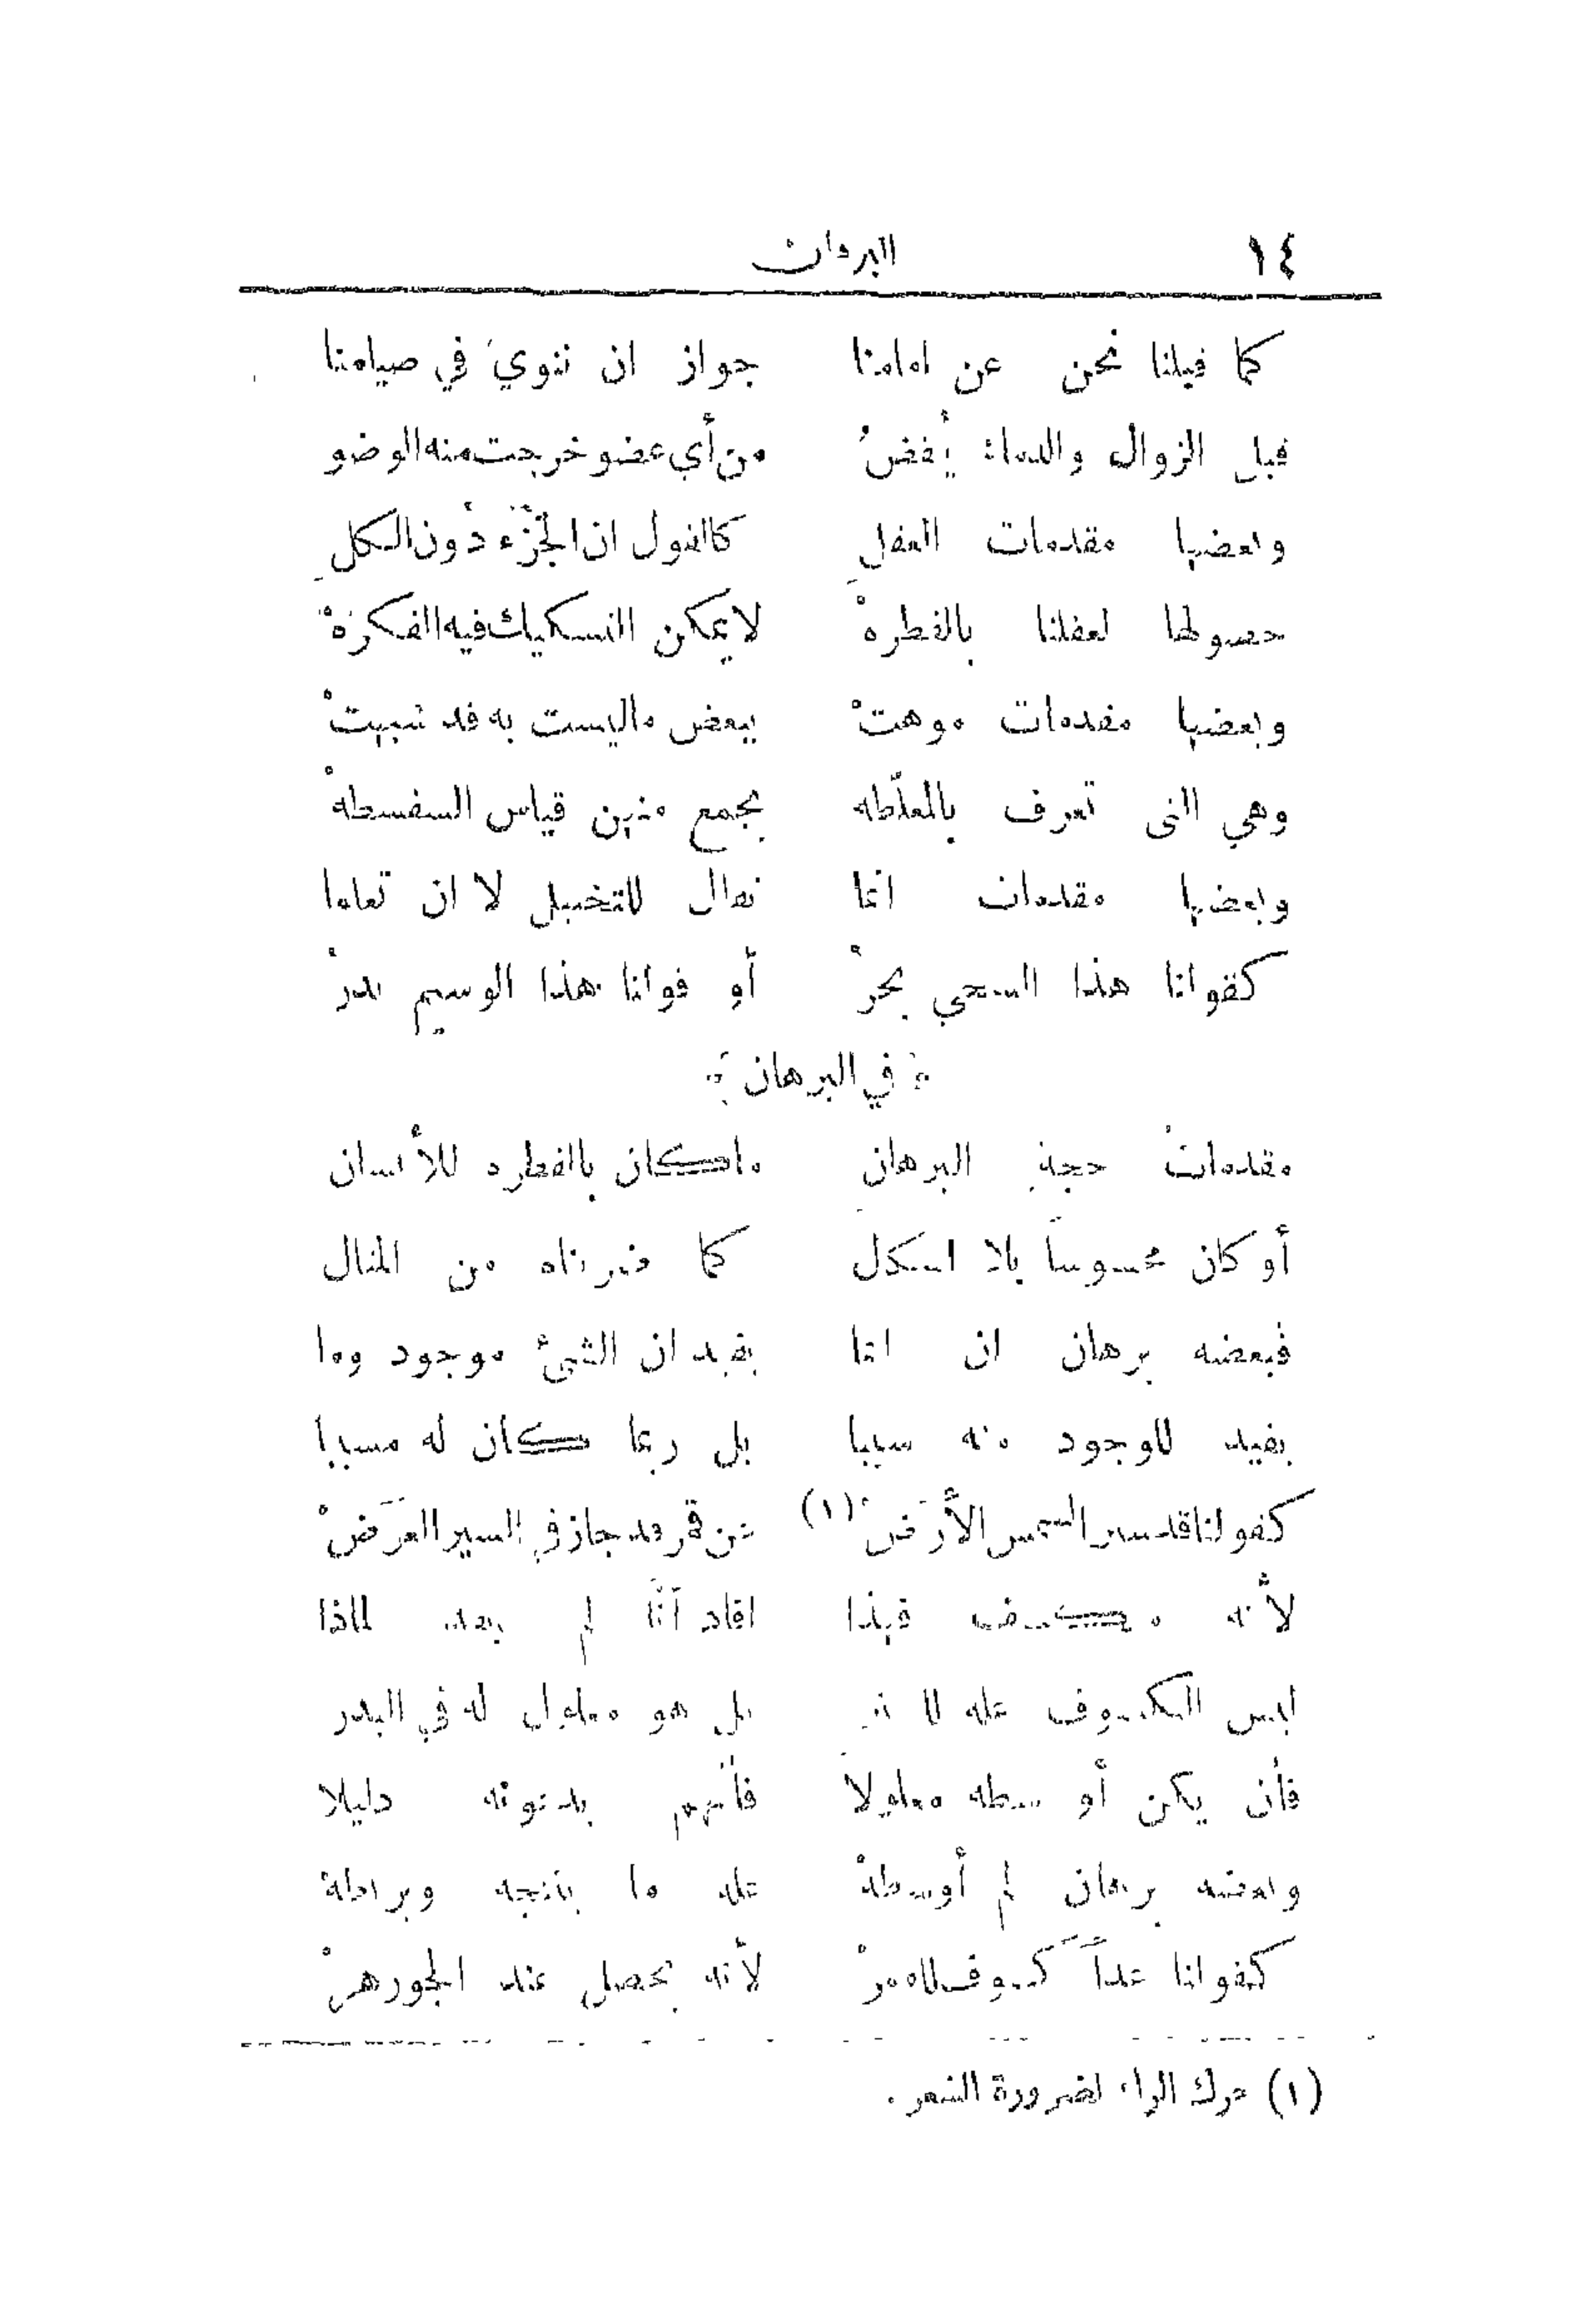 ١٤ البرهان
كما قبلنا نحن عن امامنا جواز ان ننوي في صيامنا
قبل الزوال والدماء ينقضُ من أي عضو خرجت منه الوضو
وبعضها مقدمات العقلِ كالقول ان الجُزْء دُون الكلِ
حصولها لعقلنا بالفطرهْ لا يمكن التشكيك فيه الفكرهْ
وبعضها مقدمات موهتْ ببعض ماليست به قد شبهتْ
وهي التى تعرف بالمغلّطه يجمع منهن قياس السفسطهْ
وبعضها مقدمات انما تقال للتخييل لا ان تعلما
كقولنا هذا السخي بحرْ أو قولنا هذا الوسيم بدرْ
﴿ في البرهان ﴾
مقدماتُ حجةِ البرهانِ ماكان بالفطره للأنسان
أو كان محسوساً بلا اشكال كما ضربناه من المثال
فبعضه برهان ان انما يفيد ان الشيئ موجود وما
يفيد للوجود منه سببا بل ربما كان له مسببا
كقولنا قد ستر الشمس الأرَضْ (١) عن قمر قد جاز في السير العَرَضْ
لأنه منكسف فهذا افاد أنّا لم يفد لماذا
ليس الكسوف عله للستر بل هو معلول له في البدر
فأن يكن أوسطه معلولا فأنهم يدعونه دليلا
وبعضه برهان لم أوسطهْ عله ما ينتجه ويربطهْ
كقولنا غداً كسوف للقمرْ لأنه يحصل عند الجوزهرْ
(١) حرك الراء لضرورة الشعر .